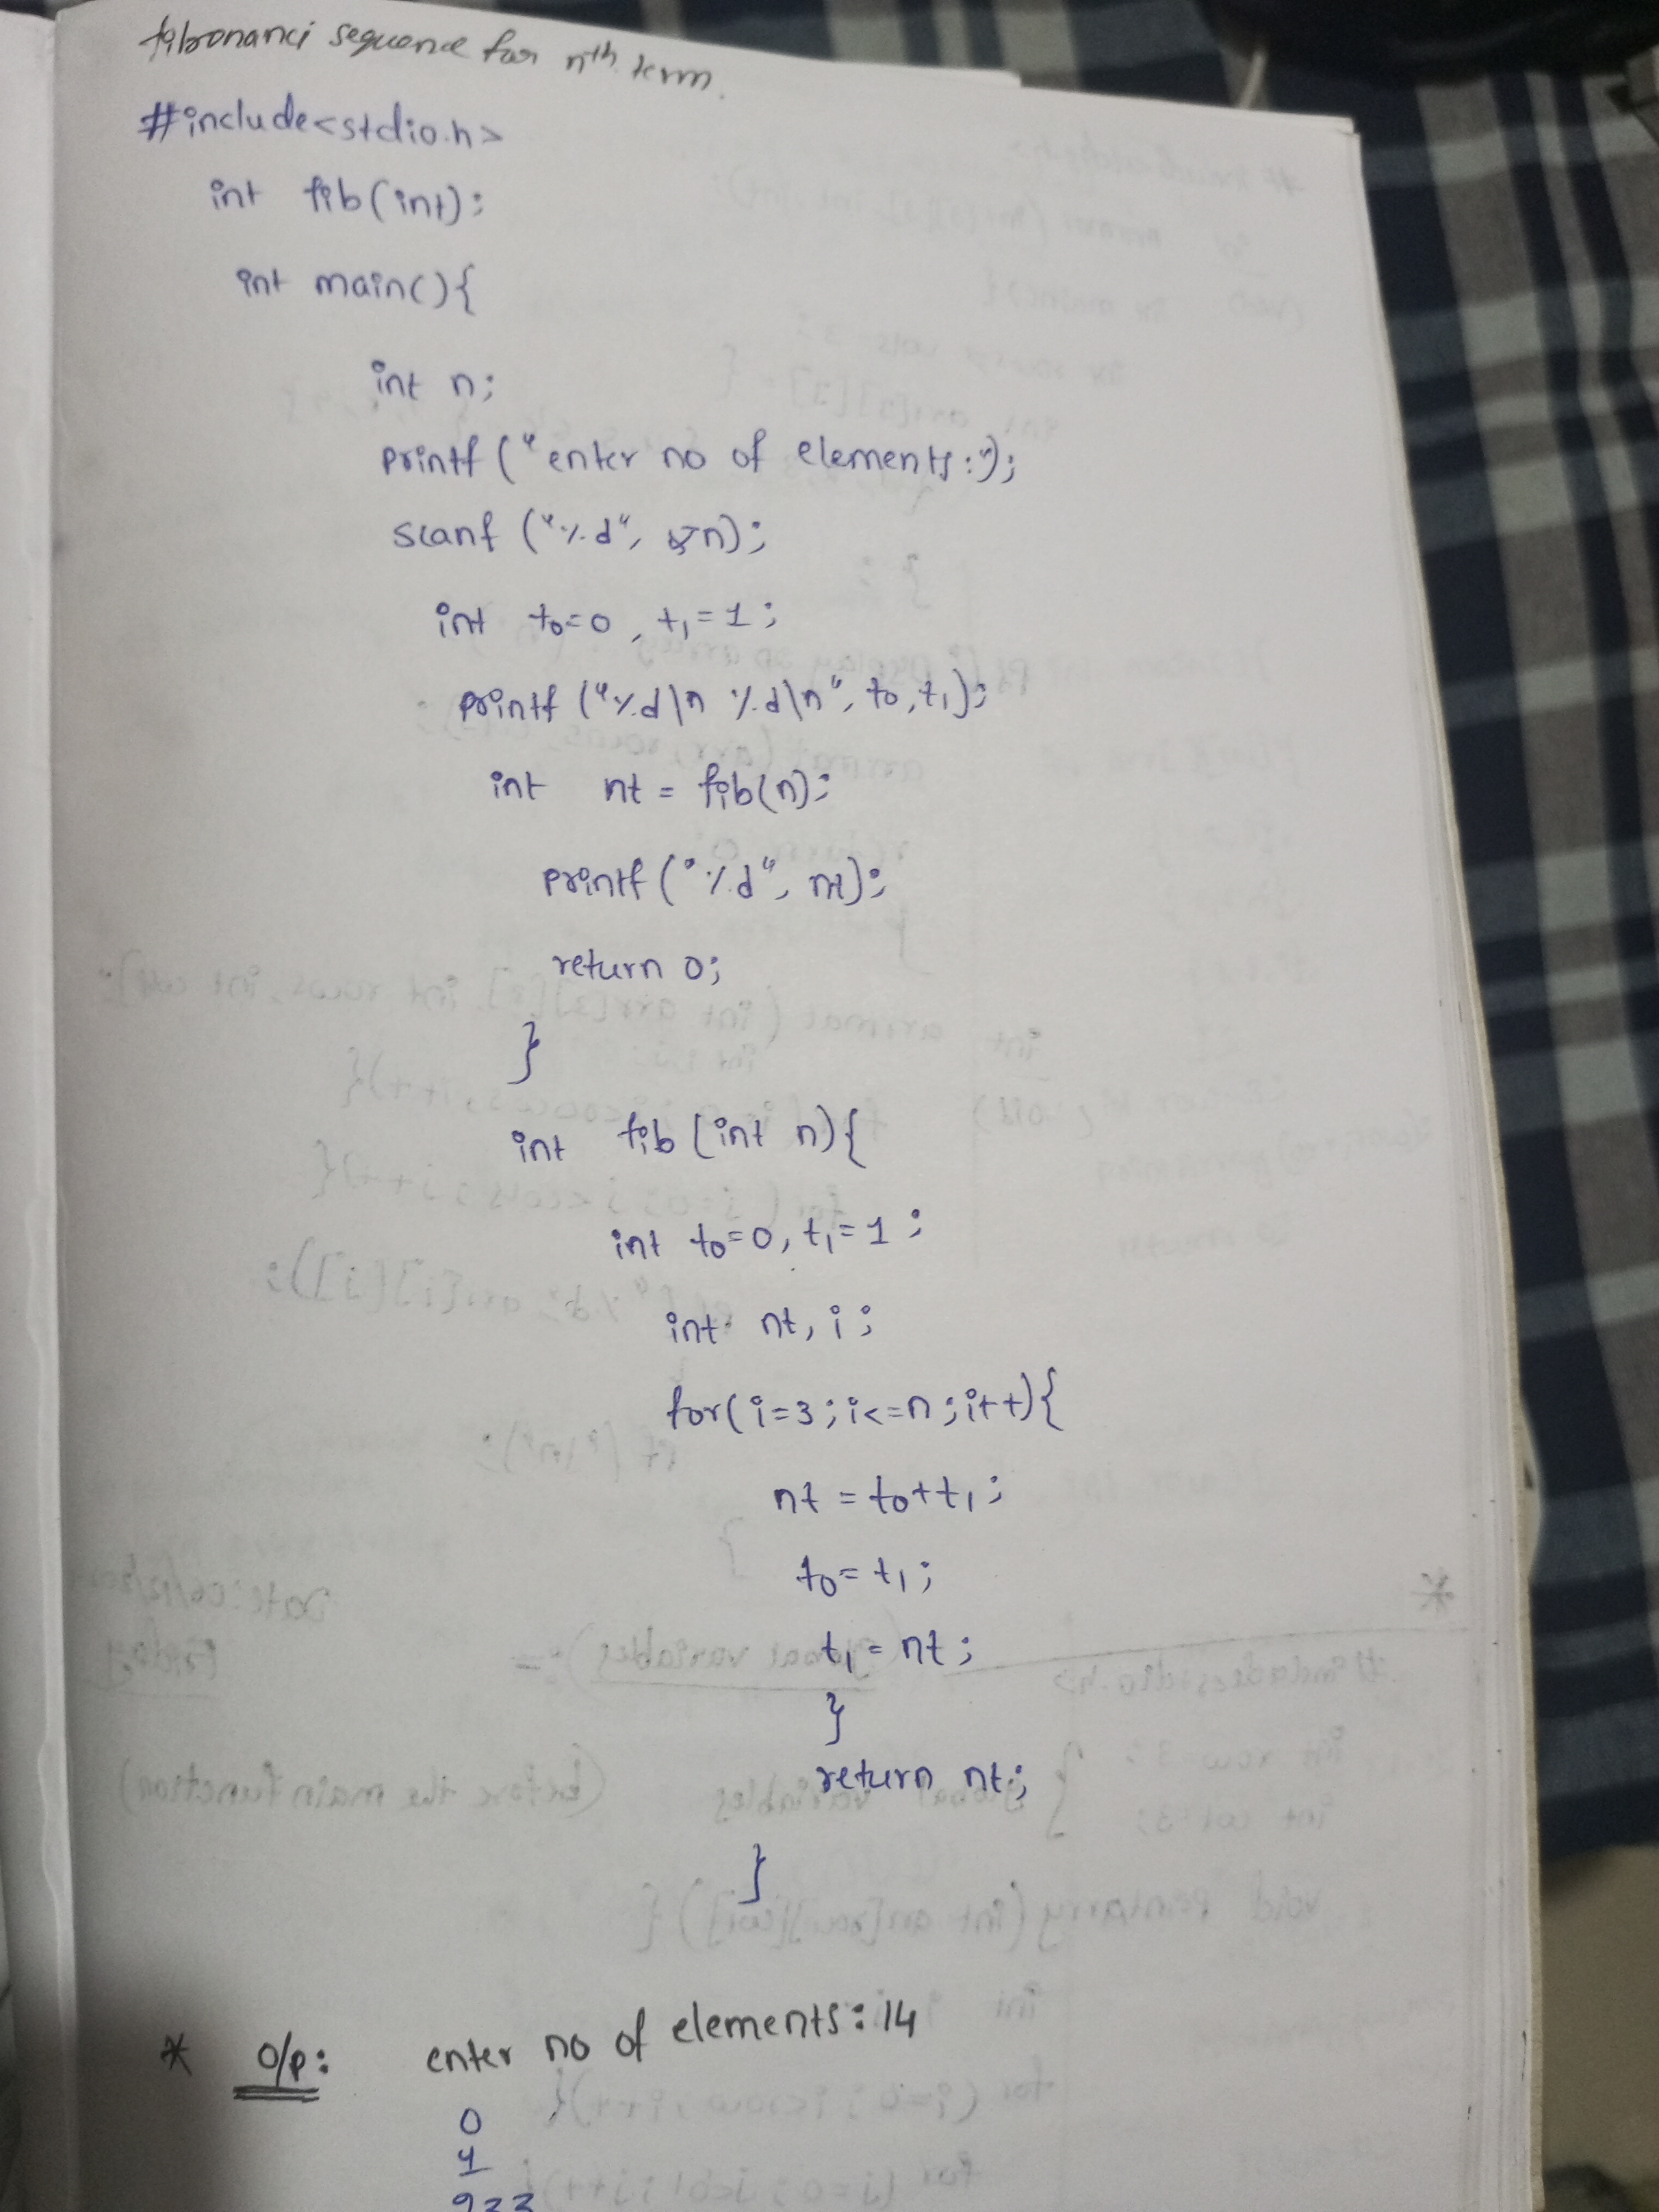 fibonanci sequence for nth term.
#include<stdio.h>
int fib(int);
int main(){
int n;
printf("enter no of elements:");
scanf("%d", &n);
int t0=0, t1=1;
printf("%d\n %d\n", t0,t1);
int nt = fib(n);
printf("%d", nt);
return 0;
}
int fib(int n){
int t0=0, t1=1;
int nt, i;
for(i=3;i<=n;i++){
nt = t0+t1;
t0=t1;
t1=nt;
}
return nt;
}
* O/P: enter no of elements: 14
0
1
233